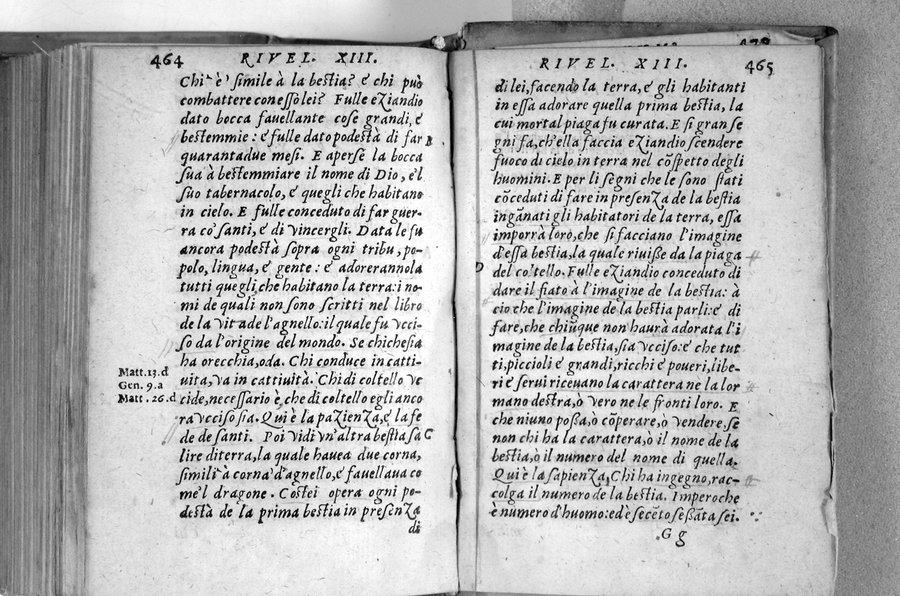 464 RIVEL. XIII.
Chi è simile à la bestia? e chi può
combattere con esso lei? Fulle eziandio
dato bocca fauellante cose grandi, e
bestemmie: e fulle dato podestà di far
B
quarantadue mesi. E aperse la bocca
sua à bestemmiare il nome di Dio, e'l
suo tabernacolo, e quegli che habitano
in cielo. E fulle conceduto di far guer-
ra co' santi, e di vincergli. Data le fu
ancora podestà sopra ogni tribu, po-
polo, lingua, e gente: e adorerannola
tutti quegli che habitano la terra: i no-
mi de quali non sono scritti nel libro
de la vita de l'agnello: il quale fu vcci-
so da l'origine del mondo. Se chichesia
ha orecchia, oda. Chi conduce in catti-
Matt. 13. d
uita, va in cattiuità. Chi di coltello vc
Gen. 9. a
cide, necessario è, che di coltello egli anco
Matt. 26. d
ra vcciso sia. Qui è la pazienza, e la fe
de de santi. Poi vidi vn'altra bestia sa
C
lire di terra, la quale hauea due corna,
simili à corna d'agnello, e fauellaua co
me'l dragone. Costei opera ogni po-
destà de la prima bestia in presenza
di
RIVEL. XIII. 465
di lei, facendo la terra, e gli habitanti
in essa adorare quella prima bestia, la
cui mortal piaga fu curata. E fi gran se
gni fa, ch'ella faccia eziandio scendere
fuoco di cielo in terra nel cōspetto degli
huomini. E per li segni che le sono stati
cōceduti di fare in presenza de la bestia
ingānati gli habitatori de la terra, essa
imporrà loro, che si facciano l'imagine
d'essa bestia, la quale riuisse da la piaga
del coltello. Fulle eziandio conceduto di
D
dare il fiato à l'imagine de la bestia: à
cio che l'imagine de la bestia parli: e di
fare, che chiūque non haurà adorata l'i
magine de la bestia, sia vcciso: e che tut
ti, piccioli e grandi, ricchi e poueri, libe-
ri e serui riceuano la carattera ne la lor
mano destra, ò vero ne le fronti loro. E
che niuno possa, ò cōperare, ò vendere, se
non chi ha la carattera, ò il nome de la
bestia, ò il numero del nome di quella.
Qui è la sapienza, Chi ha ingegno, rac-
colga il numero de la bestia. Imperoche
è numero d'huomo: ed è secēto sessāta sei.
G g